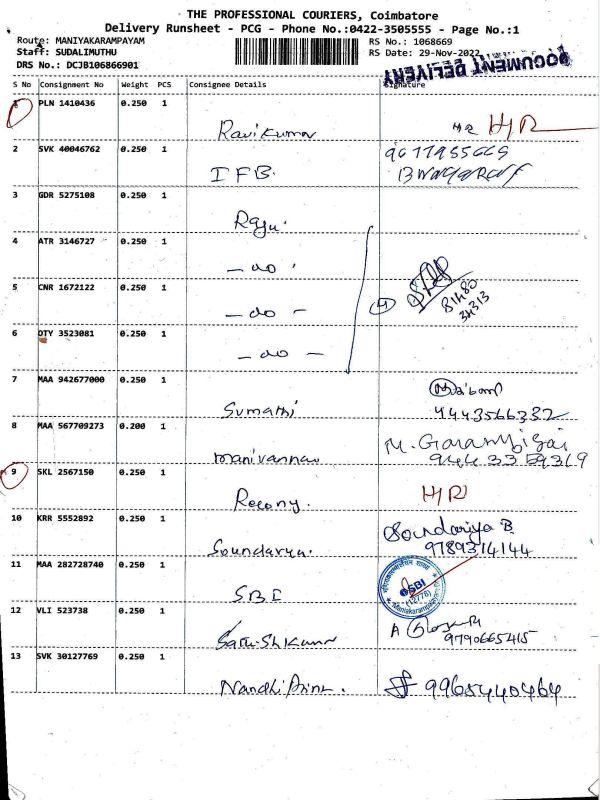 THE PROFESSIONAL COURIERS, Coimbatore
Delivery Runsheet - PCG - Phone No.:0422-3505555 - Page No.:1
Route: MANIYAKARAMPAYAM RS No.: 1068669
Staff: SUDALIMUTHU RS Date: 29-Nov-2022
DRS No.: DCJB106866901
DOCUMENT DELIVERY
S No Consignment No Weight PCS Consignee Details Signature
1 PLN 1410436 0.250 1 Ravikumar H/R
2 SVK 40046762 0.250 1 IFB.
3 GDR 5275108 0.250 1 Raju.
4 ATR 3146727 0.250 1 - do -
5 CNR 1672122 0.250 1 - do - 4 81480
34313
6 DTY 3523081 0.250 1 - do -
7 MAA 942677000 0.250 1 Sumathi
4443566332
8 MAA 567709273 0.200 1 Manivannan M.
9443359369
9 SKL 2567150 0.250 1 Recony. H/R
10 KRR 5552892 0.250 1 Soundarya. Soundariya B
9789314144
11 MAA 282728740 0.250 1 SBI SBI
(12776)
12 VLI 523738 0.250 1 Sathishkumar A
9790665415
13 SVK 30127769 0.250 1 9965440464